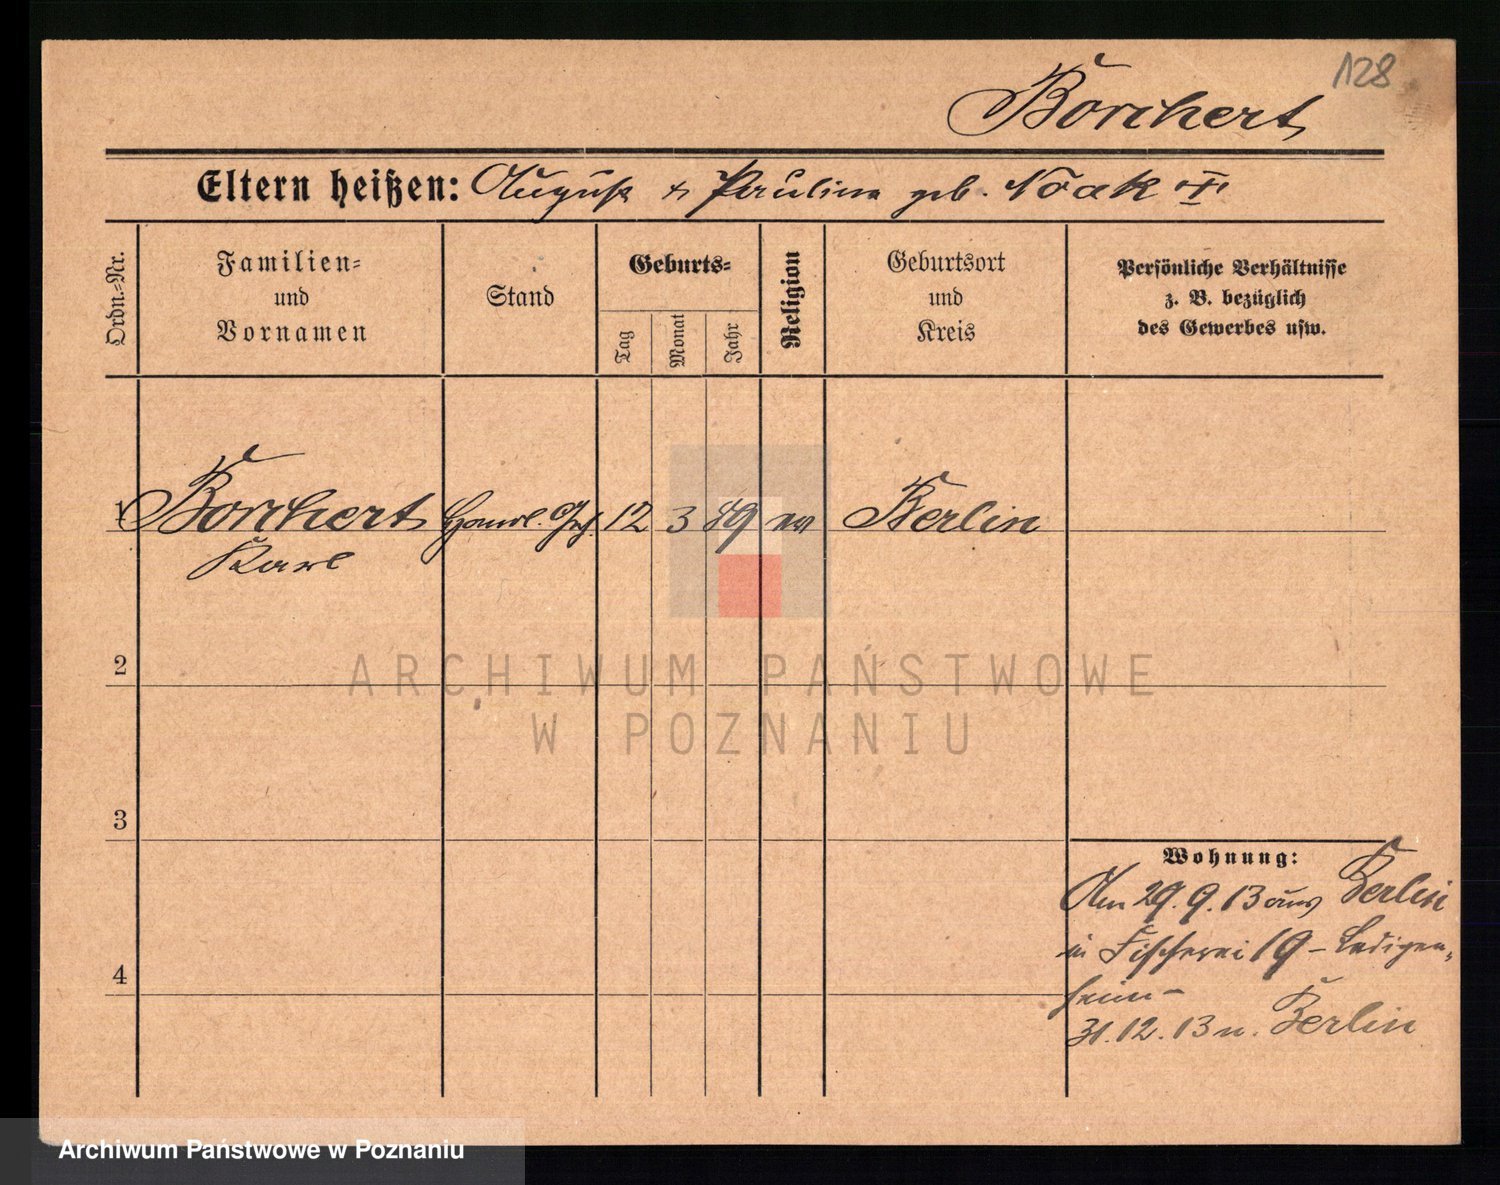 128
Borchert
Eltern heißen: August & Pauline geb. Noak
Ordn.-Nr.
Familien-
und
Vornamen
Stand
Geburts-
Tag
Monat
Jahr
Religion
Geburtsort
und
Kreis
Persönliche Verhältnisse
z. B. bezüglich
des Gewerbes usw.
1 Borchert Handl. Geh. 12 3 89 ev Berlin
Karl
2
ARCHIWUM PAŃSTWOWE
W POZNANIU
3
Wohnung:
Am 29.9.13 aus Berlin
in Fischerei 19 - Ledigen-
heim -
4
31.12.13 n. Berlin
Archiwum Państwowe w Poznaniu